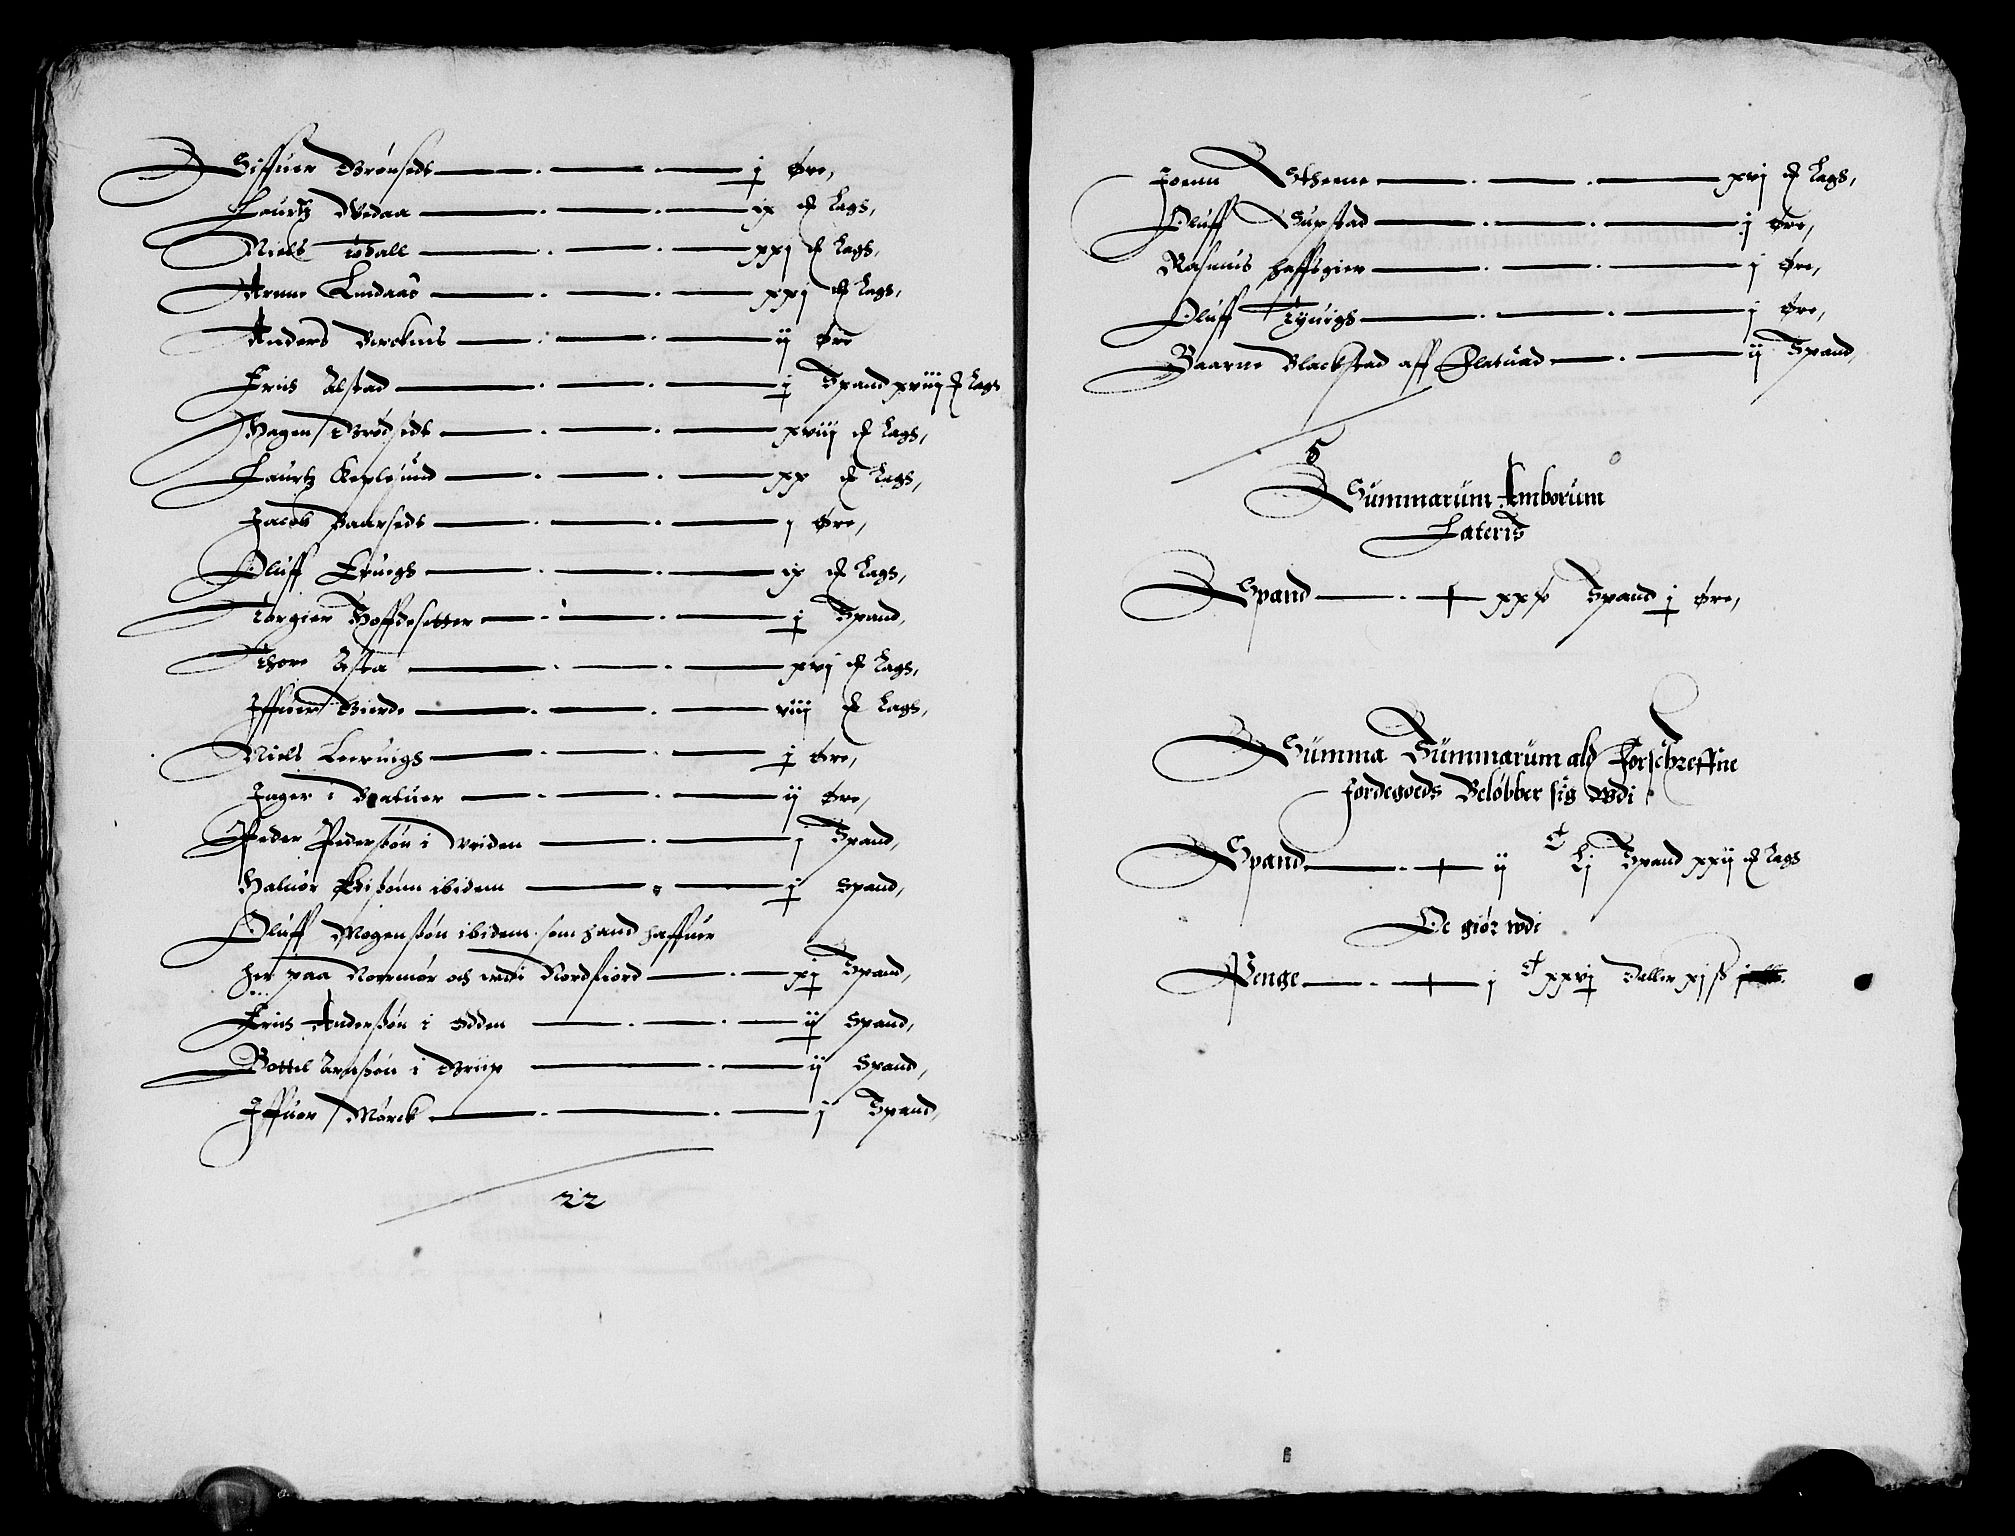 Siffuer Brønseds j Øre,
Laurtz Wedaa ix Lags,
Niels Wall xxj Lags,
Arnne Lindaas xxj Lags,
Anders Bircknes ij Øre
Friis Alstad j Spand xviij Lags
Hagen Brødsedt xviij Lags,
Laurtz Keplesund xx Lags,
Jacob Baarsedt j Øre,
Oluff Eruigs ix Lags,
Torgier Hoffdesetter j Spand,
Thore Asta xvj Lags,
Iffuer Bierde viij Lags,
Niels Leeruigs j Øre,
Inger i Batuer ij Øre,
Peder Pedersøn i Vriden j Spand,
Haluor ibidem j Spand,
Oluff Mogensøn ibidem som hand haffuer
her paa Norrmør och wdi Nordfiord xj Spand,
Friis Andersøn i Odden ij Spand,
Bottel Arnsøn i Briip ij Spand,
Iffuer Mørck j Spand,
22
Joenn Stheene xvj Lags,
Oluff Supstad j Øre,
Rasmus Haffsgier j Øre,
Oluff Tyuigs j Øre,
Baarne Blackstad aff Flatuad ij Spand
5
Summarum Amborum
Lateris
Spand xxx Spand j Øre,
Summa Summarum ald Forschreffne
Jordegoeds Beløbber sig wdi
Spand ij C Lj Spand xxij Lags
Er giør wdi
Penge j C xxvj Daller xj ß